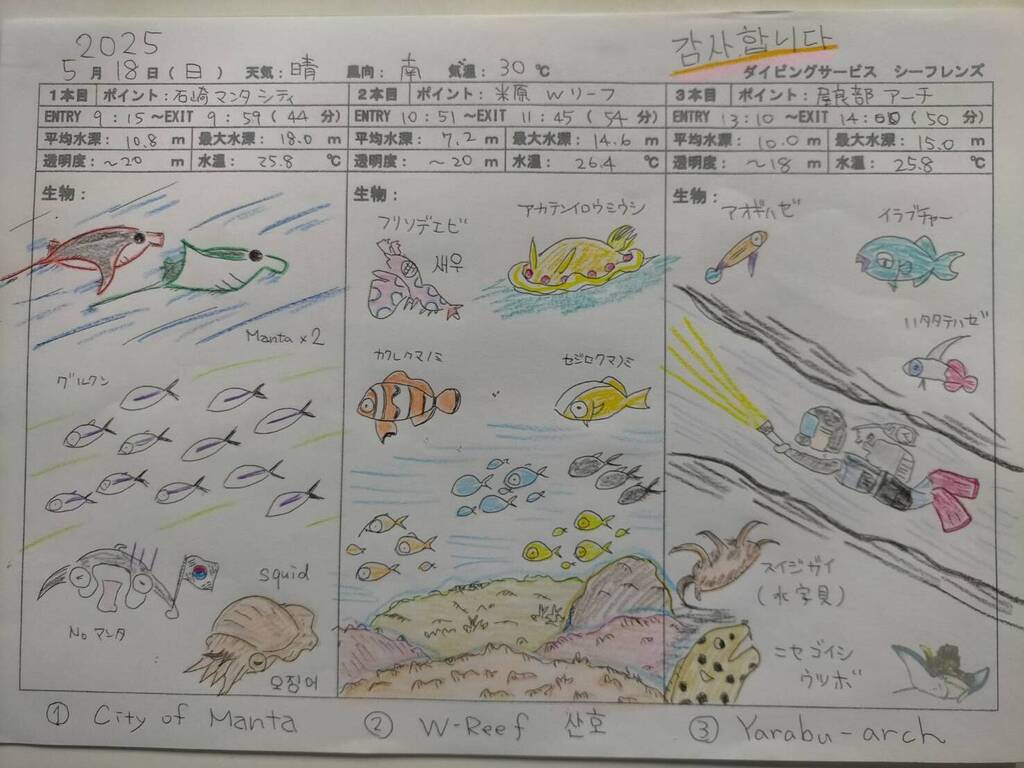 2025
5月18日(日) 天気:晴 風向:南 気温:30℃
감사합니다
ダイビングサービス シーフレンズ
1本目 ポイント:石崎マンタシティ
ENTRY 9:15~EXIT 9:59(44分)
平均水深:10.8m 最大水深:18.0m
透明度:~20m 水温:25.8℃
生物:
Manta×2
グルクン
No マンタ
squid
오징어
① City of Manta
2本目 ポイント:米原 Wリーフ
ENTRY 10:51~EXIT 11:45(54分)
平均水深:7.2m 最大水深:14.6m
透明度:~20m 水温:26.4℃
生物:
フリソデエビ
새우
アカテンイロウミウシ
カクレクマノミ
セジロクマノミ
② W-Reef 산호
3本目 ポイント:屋良部 アーチ
ENTRY 13:10~EXIT 14:00(50分)
平均水深:10.0m 最大水深:15.0m
透明度:~18m 水温:25.8℃
生物:
アオギハゼ
イラブチャー
ハタタテハゼ
スイジガイ
(水字貝)
ニセゴイシ
ウツボ
③ Yarabu-arch